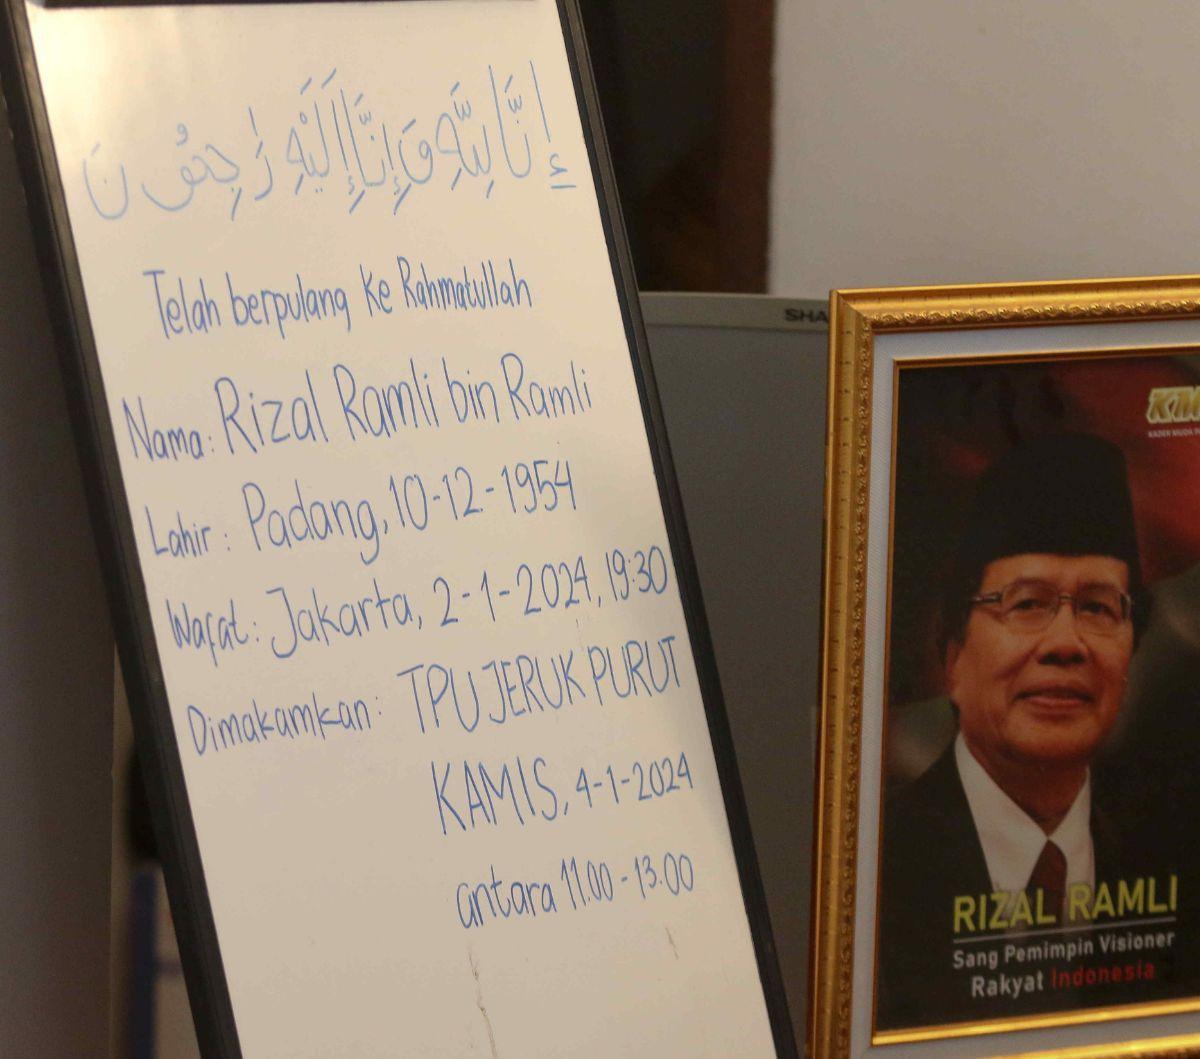 إِنَّا لِلَّهِ وَإِنَّا إِلَيْهِ رَاجِعُونَ
Telah berpulang Ke Rahmatullah
Nama: Rizal Ramli bin Ramli
Lahir: Padang, 10-12-1954
Wafat: Jakarta, 2-1-2024, 19:30
Dimakamkan: TPU JERUK PURUT
KAMIS, 4-1-2024
antara 11.00-13.00
SHA
KM
KADER MUDA
RIZAL RAMLI
Sang Pemimpin Visioner
Rakyat Indonesia